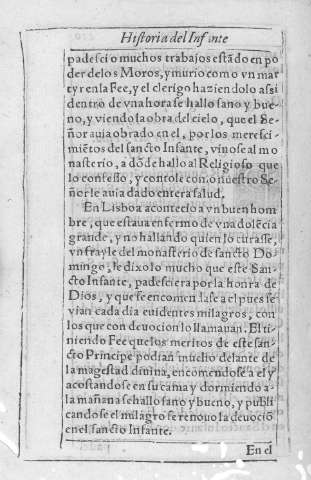 Historia del Infante
padescio muchos trabajos estãdo en po
der de los Moros, y murio como vn mar
tyr en la Fee, y el clerigo haziendolo assi
dentro de vna hora se hallo sano y bue-
no, y viendo la obra del cielo, que el Se-
ñor auia obrado en el, por los meresci-
miẽtos del sancto Infante, vino se al mo
nasterio, a dõde hallo al Religioso que
lo confesso, y contole como nuestro Se-
ñor le auia dado entera salud.
En Lisboa acontecio a vn buen hom
bre, que estaua enfermo de vna dolẽcia
grande, y no hallando quien lo curasse,
vn frayle del monasterio de sancto Do-
mingo, le dixo lo mucho que este San-
cto Infante, padesciera por la honra de
Dios, y que se encomendase a el pues se
vian cada dia euidentes milagros, con
los que con deuocion lo llamauan. El ti-
niendo Fee que los meritos de este san-
cto Principe podian mucho delante de
la magestad diuina, encomendose a el y
acostandose en su cama y dormiendo a-
la mañana se hallo sano y bueno, y publi
candose el milagro se renouo la deuociõ
en el sancto Infante.
En el